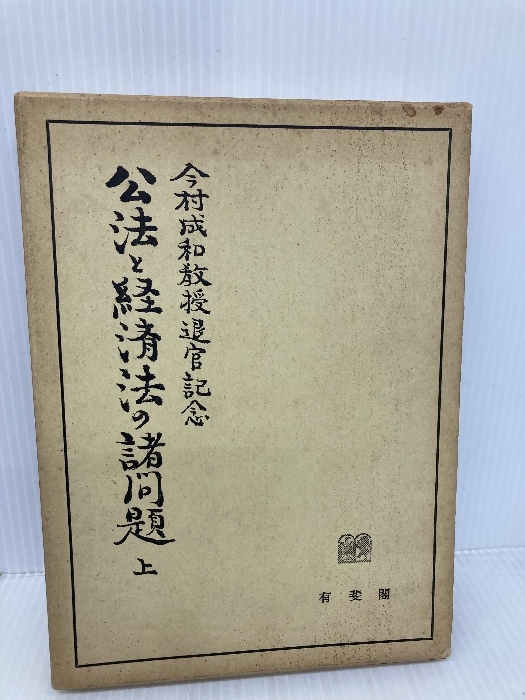 今村成和教授退官記念
公法と経済法の諸問題 上
有斐閣